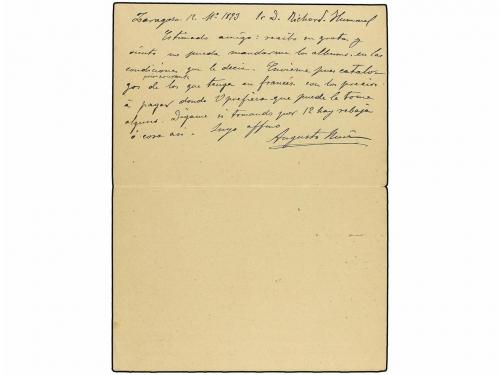 Zaragoza 12 Mº 1893 Sr D. Richard Hummel
Estimado amigo: recibo su grata y
siento no pueda mandarme los albums en las
condiciones que le decia. Envieme pues catalo-
gos de los que tenga en francés con los precios
á pagar donde V prefiera que puede le tome
alguno. Digame si tomando por 12 hay rebaja
ó cosa asi. Suyo affmo
Augusto